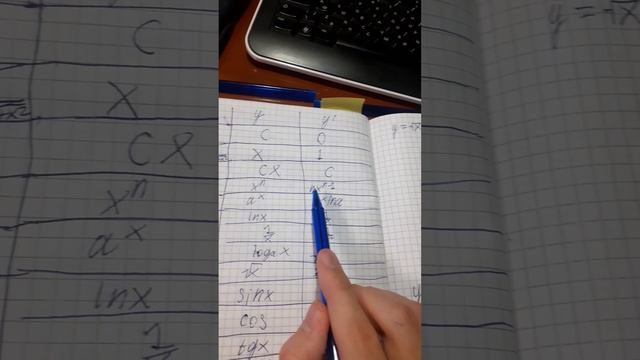 y y'
C 0
X 1
CX C
xⁿ nxⁿ⁻¹
aˣ lna
lnx
1/x
loga x
√x
sinx
cos
tgx